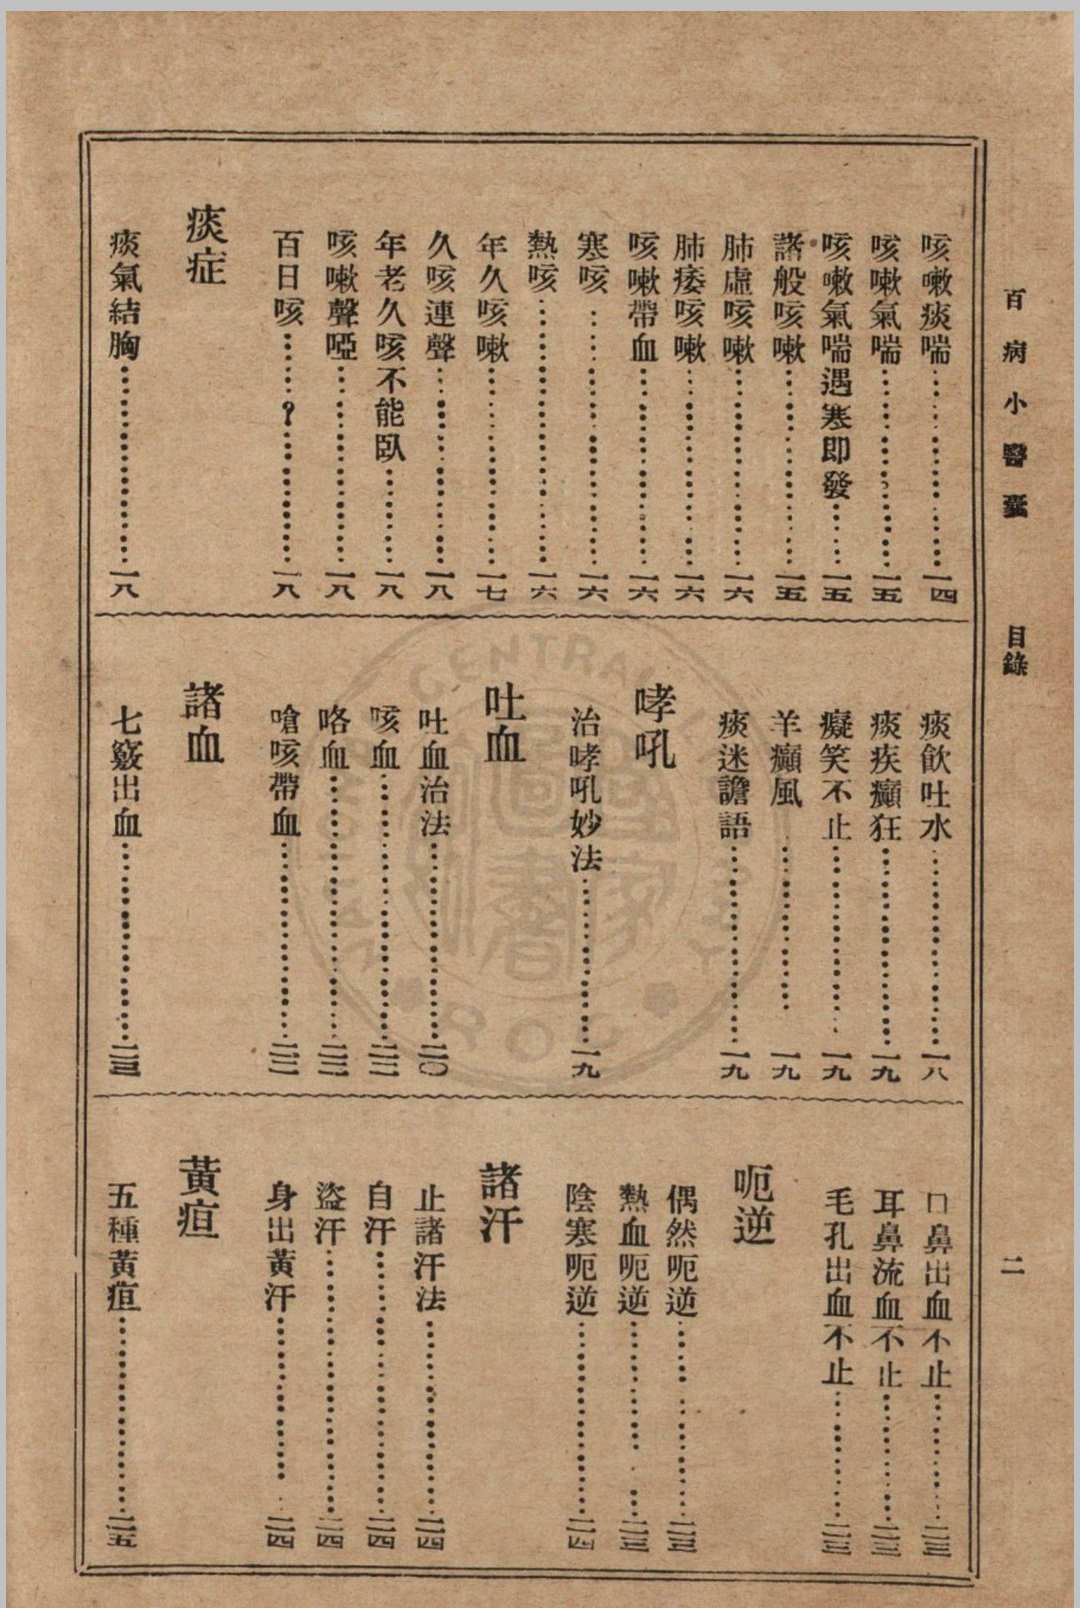 百病小醫囊　目錄　二
咳嗽痰喘……一四
咳嗽氣喘……一五
咳嗽氣喘遇寒即發……一五
諸般咳嗽……一五
肺虛咳嗽……一六
肺痿咳嗽……一六
咳嗽帶血……一六
寒咳……一六
熱咳……一六
年久咳嗽……一七
久咳連聲……一八
年老久咳不能臥……一八
咳嗽聲啞……一八
百日咳……一八
痰症
痰氣結胸……一八
痰飲吐水……一八
痰疾癲狂……一九
癡笑不止……一九
羊癲風……一九
痰迷譫語……一九
哮吼
治哮吼妙法……一九
吐血
吐血治法……二〇
咳血……二二
咯血……二二
嗆咳帶血……二二
諸血
七竅出血……二三
口鼻出血不止……二三
耳鼻流血不止……二三
毛孔出血不止……二三
呃逆
偶然呃逆……二三
熱血呃逆……二三
陰寒呃逆……二四
諸汗
止諸汗法……二四
自汗……二四
盜汗……二四
身出黃汗……二四
黃疸
五種黃疸……二五
CENTRAL
ROC